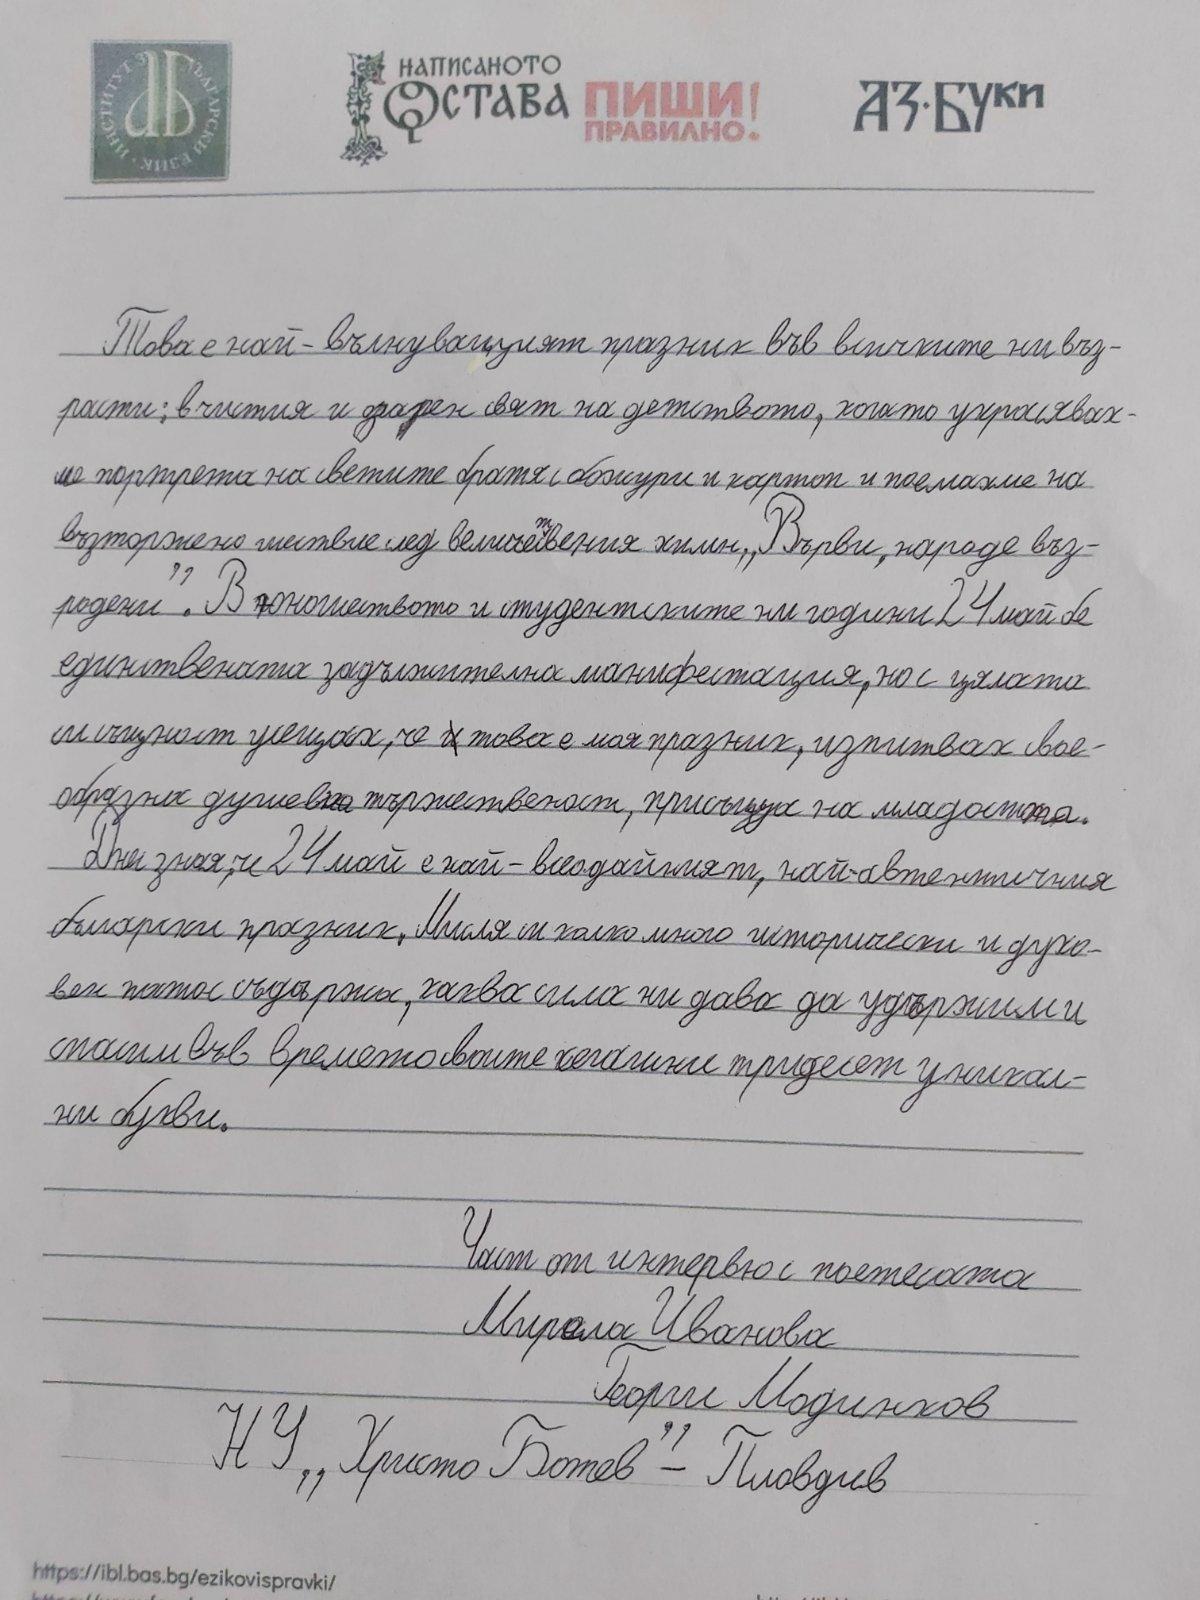 ИНСТИТУТ ЗА БЪЛГАРСКИ ЕЗИК
НАПИСАНОТО
ОСТАВА
ПИШИ
ПРАВИЛНО!
АЗ·БУКИ
Това е най-вълнуващият празник във всичките ни въз-
расти: в чистия и дарен свят на детството, когато украсявах-
ме портрета на светите братя с божури и картон и поемахме на
възторжено шествие след величествения химн „Върви, народе въз-
родени". В юношеството и студентските ни години 24 май бе
единствената задължителна манифестация, но с цялата
си същност усещах, че това е моя празник, изпитвах свое-
образна душевна тържественост, присъща на младостта.
Днес зная, че 24 май е най-всеодайният, най-автентичния
български празник. Мисля си колко много исторически и духо-
вен патос съдържа, каква сила ни дава да удържим и
спасим във времето своите
тридесет уникал-
ни букви.
Част от интервю с поетесата
Мирела Иванова
Георги Модинков
НУ „Христо Ботев" – Пловдив
https://ibl.bas.bg/ezikovispravki/